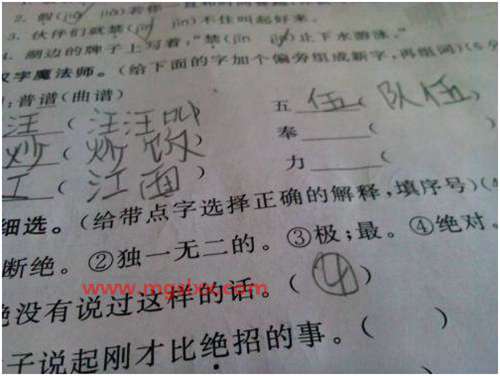 2. 假(jiǎ jià)若你一直
3. 伙伴们就禁(jīn jìn)不住叫起好来。
4. 湖边的牌子上写着,“禁(jīn jìn)止下水游泳。”
汉字魔法师。(给下面的字加个偏旁组成新字,再组词)(6分
:普 谱(曲谱)
汪(汪汪叫 五 伍(队伍)
炒(炒饭 奉 (
工(江面) 力 (
细选。(给带点字选择正确的解释,填序号)(4
断绝。②独一无二的。③极;最。④绝对。
绝没有说过这样的话。(④)
子说起刚才比绝招的事。( )